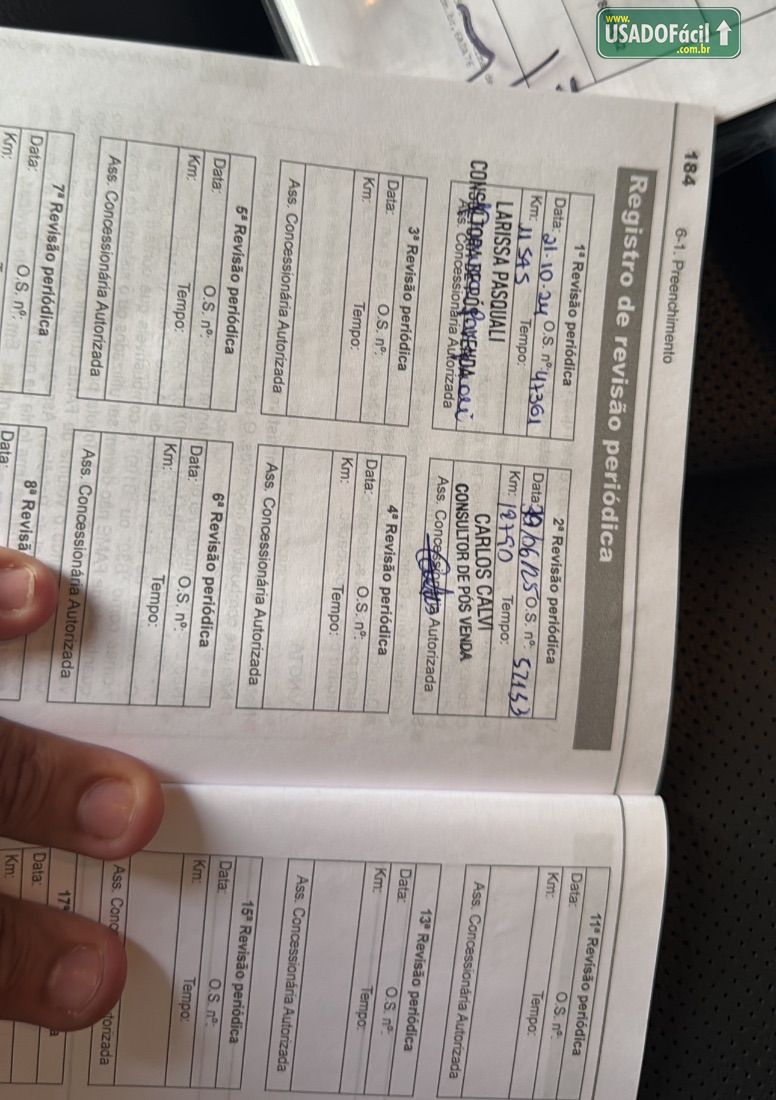 www.
USADOFácil
.com.br
184
6-1. Preenchimento
Registro de revisão periódica
1ª Revisão periódica
Data: 21-10-24 O.S. nº 47361
Km: 11 545 Tempo:
LARISSA PASQUALI
CONSULTORA DE PÓS VENDA
Ass. Concessionária Autorizada
2ª Revisão periódica
Data: 06/25 O.S. nº: 57153
Km: 18790 Tempo:
CARLOS CALVI
CONSULTOR DE PÓS VENDA
Ass. Concessionária Autorizada
3ª Revisão periódica
Data: O.S. nº:
Km: Tempo:
Ass. Concessionária Autorizada
4ª Revisão periódica
Data: O.S. nº:
Km: Tempo:
Ass. Concessionária Autorizada
5ª Revisão periódica
Data: O.S. nº:
Km: Tempo:
Ass. Concessionária Autorizada
6ª Revisão periódica
Data: O.S. nº:
Km: Tempo:
Ass. Concessionária Autorizada
7ª Revisão periódica
Data: O.S. nº:
Km:
8ª Revisã
Data:
11ª Revisão periódica
Data: O.S. nº:
Km: Tempo:
Ass. Concessionária Autorizada
13ª Revisão periódica
Data: O.S. nº:
Km: Tempo:
Ass. Concessionária Autorizada
15ª Revisão periódica
Data: O.S. nº:
Km: Tempo:
Ass. Conc torizada
17ª
Data:
Km: